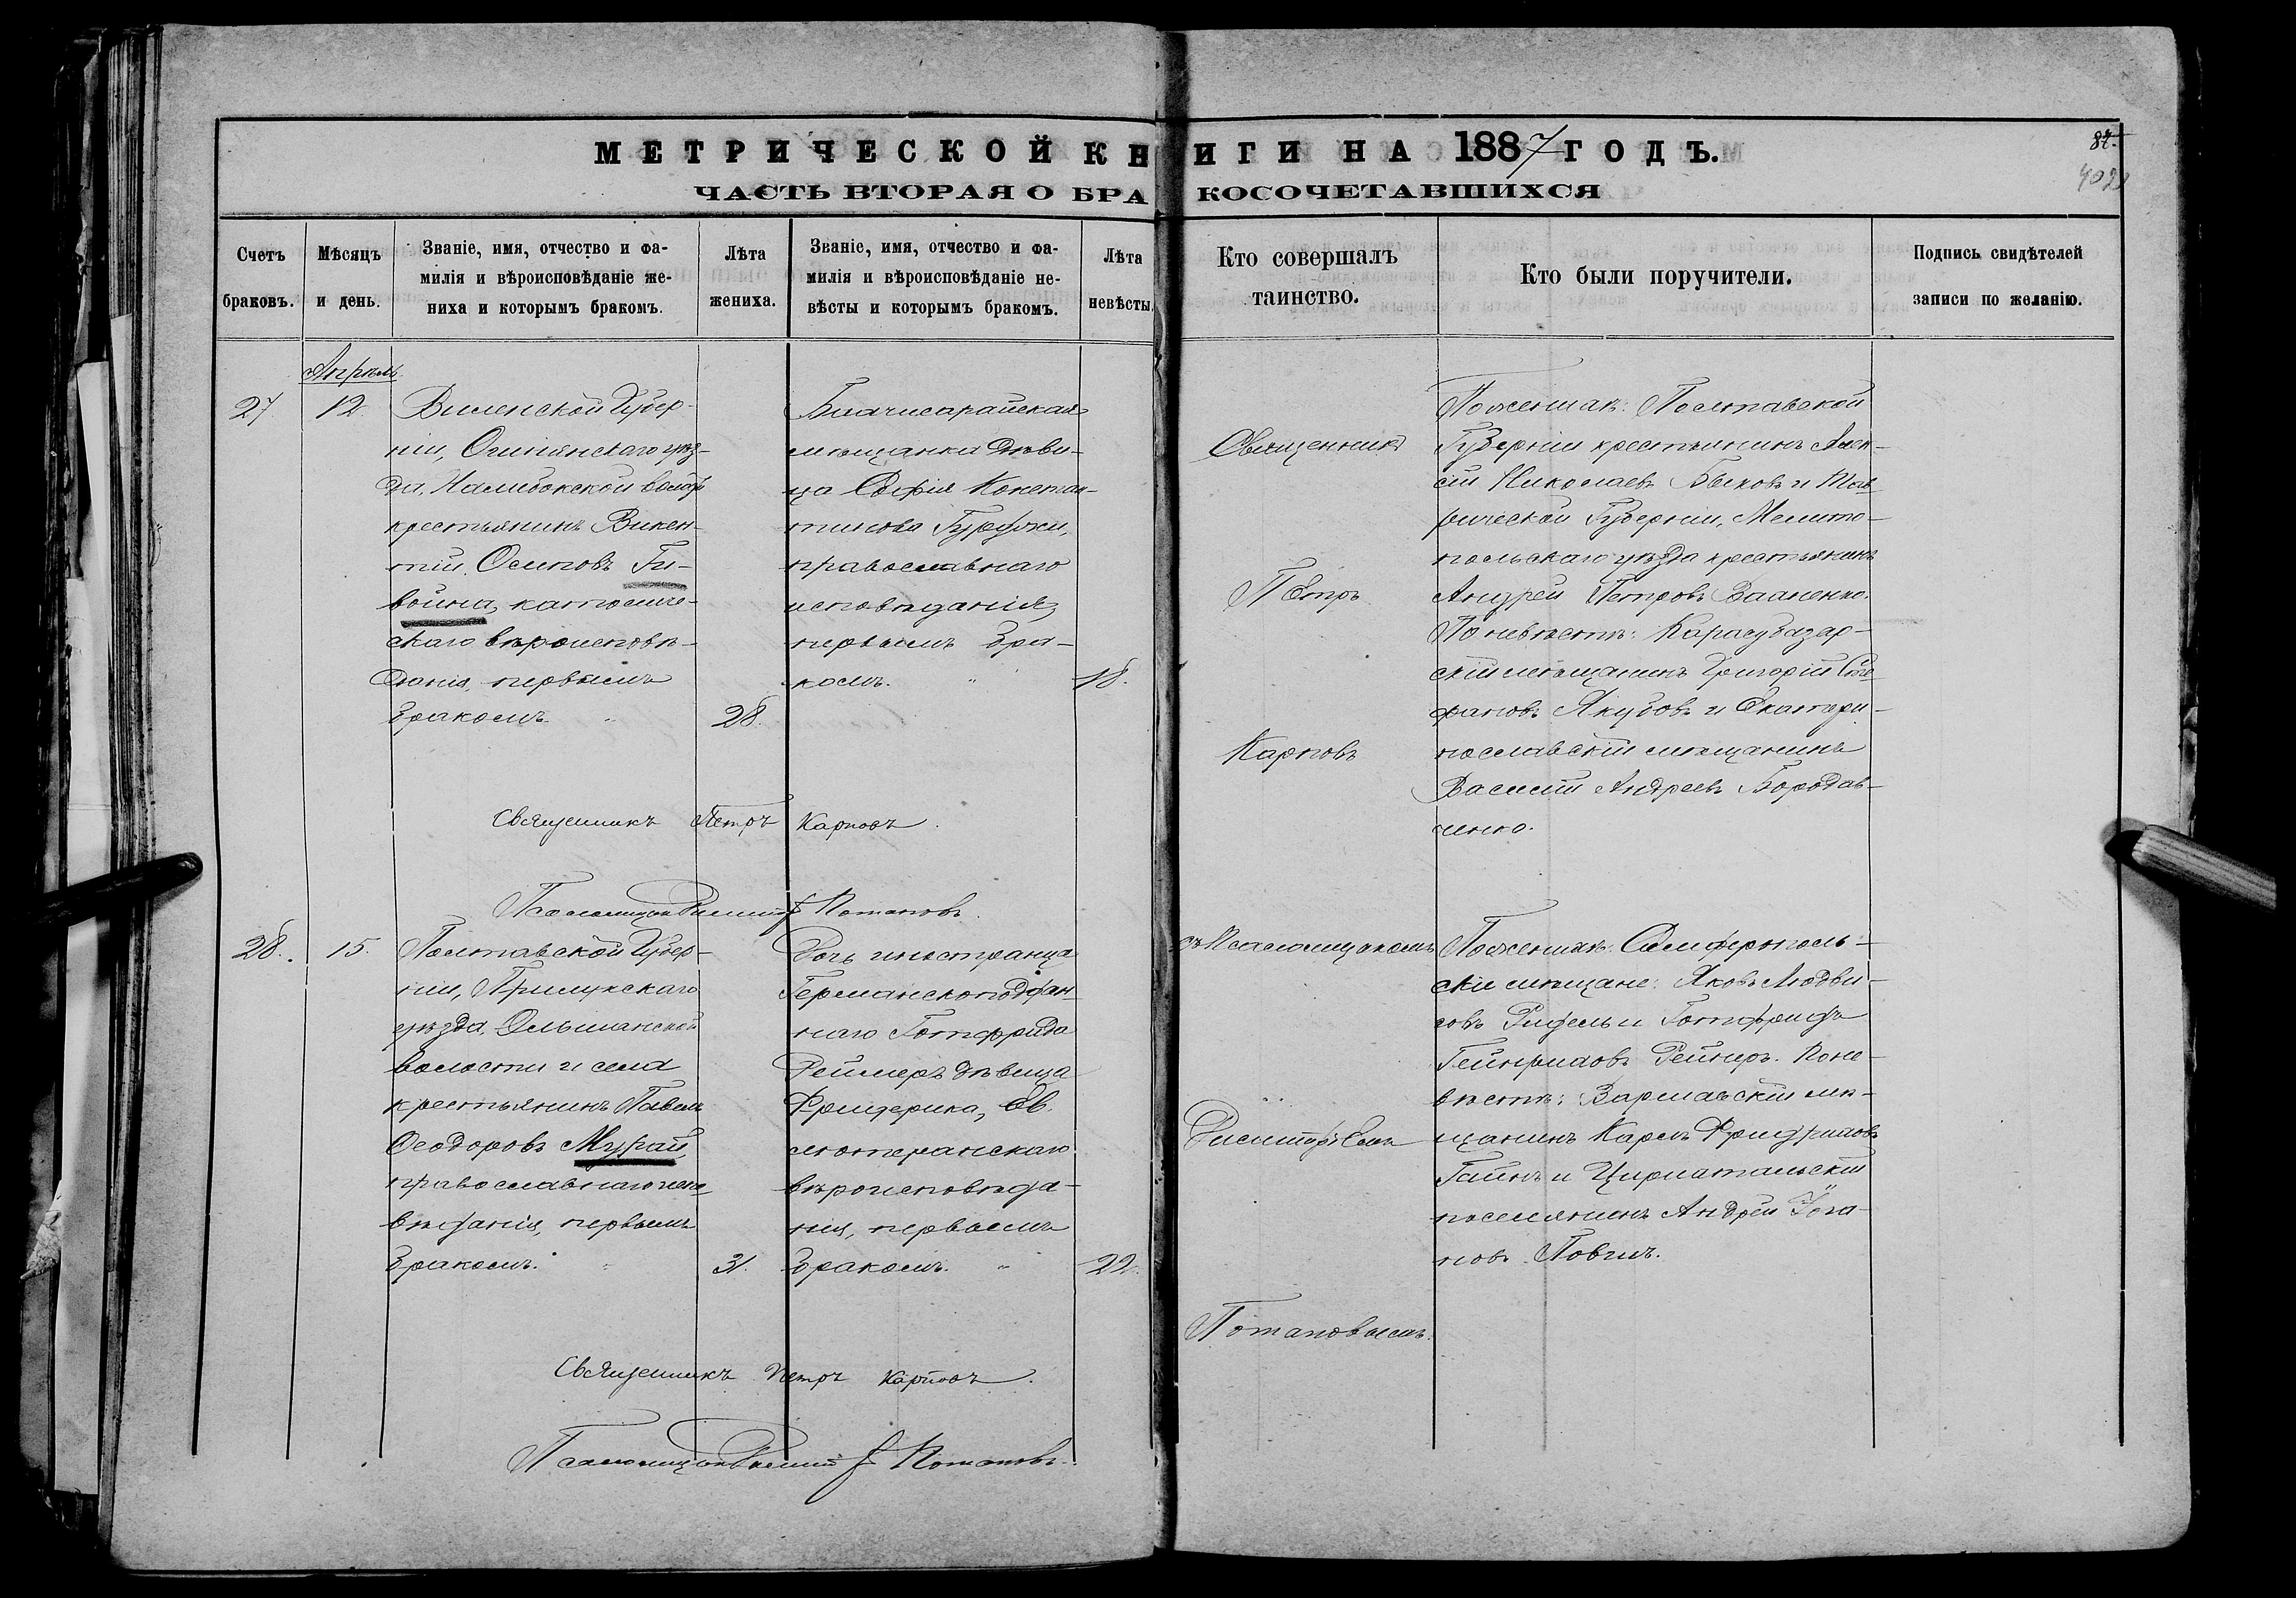 МЕТРИЧЕСКОЙ КНИГИ НА 1887 ГОДЪ.
87.
ЧАСТЬ ВТОРАЯ О БРАКОСОЧЕТАВШИХСЯ
Счетъ браковъ.
Мѣсяцъ и день.
Званіе, имя, отчество и фа-
милія и вѣроисповѣданіе же-
ниха и которымъ бракомъ.
Лѣта жениха.
Званіе, имя, отчество и фа-
милія и вѣроисповѣданіе не-
вѣсты и которымъ бракомъ.
Лѣта невѣсты.
Кто совершалъ
таинство.
Кто были поручители.
Подпись свидѣтелей
записи по желанію.
Апрѣль
27.
12.
Виленской Губер-
ніи, Ошмянскаго уѣз-
да, Налибокской волос.
крестьянинъ Викен-
тій Осиповъ Ги-
война, католиче-
скаго вѣроисповѣ-
данія, первымъ
бракомъ.
28.
Бахчисарайская
мѣщанка дѣви-
ца Софія Констан-
тинова Гурджи,
православнаго
исповѣданія,
первымъ бра-
комъ.
18.
Священникъ
Петръ
Карповъ
По женихѣ: Полтавской
Губерніи крестьянинъ Алек-
сѣй Николаевъ Быковъ и Тав
рической Губерніи, Мелито-
польскаго уѣзда крестьянинъ
Андрей Петровъ Вааненко.
По невѣстѣ: Карасубазар-
скій мѣщанинъ Григорій Сте
фановъ Якубовъ и Екатери-
нославскій мѣщанинъ
Василій Андреевъ Бородав-
ченко.
Священникъ Петръ Карповъ.
Псаломщикъ Потаповъ.
28.
15.
Полтавской Губер-
ніи, Прилукскаго
уѣзда, Ольшанской
волости и села
крестьянинъ Павелъ
Ѳеодоровъ Мурай,
православнаго испо
вѣданія, первымъ
бракомъ.
31.
Дочь иностранца
Германскоподдан-
наго Готфрида
Реймеръ дѣвица
Фридерика, Ев.
лютеранскаго
вѣроисповѣда-
нія, первымъ
бракомъ.
22.
съ Псаломщикомъ
Потаповымъ.
По женихѣ: Симферополь-
скіе мѣщане: Яковъ Людви-
говъ Ридель и Готфридъ
Гейнриховъ Рейнеръ. По не-
вѣстѣ: Варшавскій мѣ-
щанинъ Карлъ Фридриховъ
Гаинъ и Цирихтальскій
поселянинъ Андрей Іога-
новъ Ловинъ.
Священникъ Петръ Карповъ.
Псаломщикъ Потаповъ.